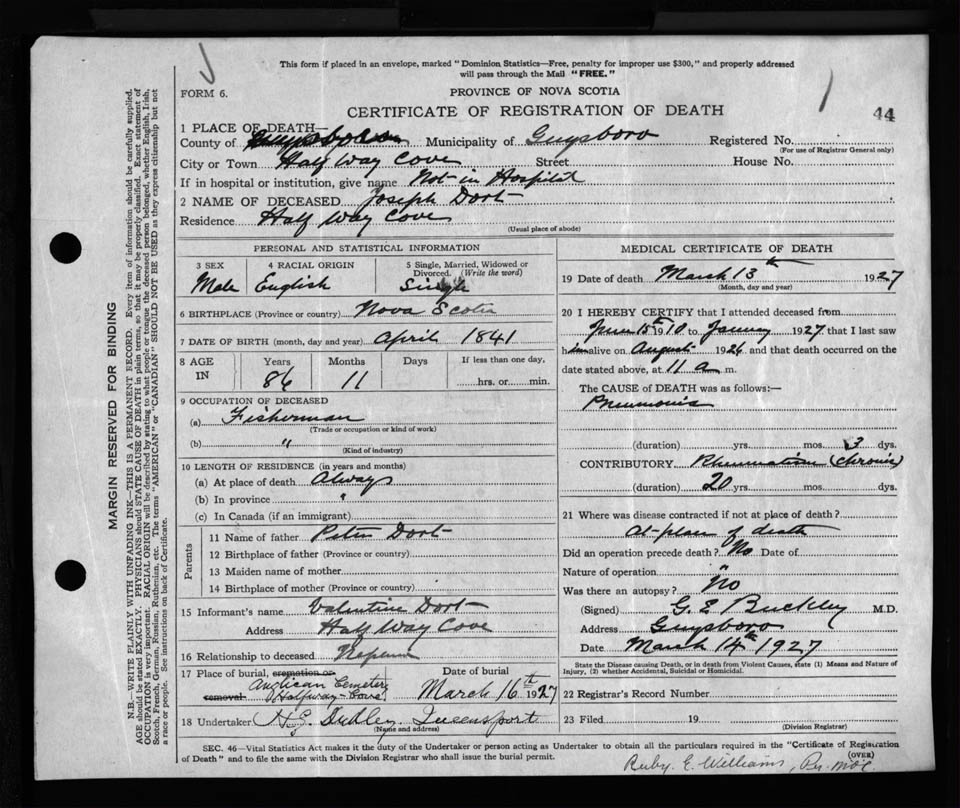 This form if placed in an envelope, marked "Dominion Statistics—Free, penalty for improper use $300," and properly addressed
will pass through the Mail "FREE."
FORM 6.
PROVINCE OF NOVA SCOTIA
CERTIFICATE OF REGISTRATION OF DEATH
44
1 PLACE OF DEATH—
County of Municipality of Guysboro Registered No.
(For use of Registrar General only)
City or Town Half Way Cove Street House No.
If in hospital or institution, give name Not in Hospital
2 NAME OF DECEASED Joseph Dort
Residence Half Way Cove
(Usual place of abode)
PERSONAL AND STATISTICAL INFORMATION
3 SEX 4 RACIAL ORIGIN 5 Single, Married, Widowed or
Divorced. (Write the word)
Male English Single
6 BIRTHPLACE (Province or country) Nova Scotia
7 DATE OF BIRTH (month, day and year) April 1841
8 AGE IN Years Months Days If less than one day,
86 11 hrs. or min.
9 OCCUPATION OF DECEASED
(a) Fisherman
(Trade or occupation or kind of work)
(b) "
(Kind of industry)
10 LENGTH OF RESIDENCE (in years and months)
(a) At place of death Always
(b) In province "
(c) In Canada (if an immigrant)
Parents
11 Name of father Peter Dort
12 Birthplace of father (Province or country)
13 Maiden name of mother
14 Birthplace of mother (Province or country)
15 Informant's name Valentine Dort
Address Half Way Cove
16 Relationship to deceased
17 Place of burial, cremation or Date of burial
removal Anglican Cemetery
Halfway Cove March 16th 1927
18 Undertaker Dudley Queensport
(Name and address)
MEDICAL CERTIFICATE OF DEATH
19 Date of death March 13th 1927
(Month, day and year)
20 I HEREBY CERTIFY that I attended deceased from
June 15th 1910 to January 1927 that I last saw
him alive on August 1926 and that death occurred on the
date stated above, at 11 a m.
The CAUSE OF DEATH was as follows:—
Pneumonia
(duration) yrs. mos. 3 dys.
CONTRIBUTORY Rheumatism (Chronic)
(duration) 20 yrs. mos. dys.
21 Where was disease contracted if not at place of death?
At place of death
Did an operation precede death? No Date of
Nature of operation "
Was there an autopsy? No
(Signed) G. E Buckley M.D.
Address Guysboro
Date March 14th 1927
State the Disease causing Death, or in death from Violent Causes, state (1) Means and Nature of
Injury, (2) whether Accidental, Suicidal or Homicidal.
22 Registrar's Record Number
23 Filed 19
(Division Registrar)
SEC. 46—Vital Statistics Act makes it the duty of the Undertaker or person acting as Undertaker to obtain all the particulars required in the "Certificate of Registration
of Death" and to file the same with the Division Registrar who shall issue the burial permit.
(OVER)
Ruby. E. Williams,
MARGIN RESERVED FOR BINDING
N.B.—WRITE PLAINLY WITH UNFADING INK—THIS IS A PERMANENT RECORD. Every item of information should be carefully supplied.
AGE should be stated EXACTLY. PHYSICIANS should STATE CAUSE OF DEATH in plain terms, so that it may be properly classified. Exact statement of
OCCUPATION is very important. RACIAL ORIGIN will be described by stating to what people or tongue the deceased person belonged, whether English, Irish,
Scotch, French, German, Russian, Ruthenian, etc. The terms "AMERICAN" or "CANADIAN" SHOULD NOT BE USED as they express citizenship but not
a race or people. See instructions on back of Certificate.